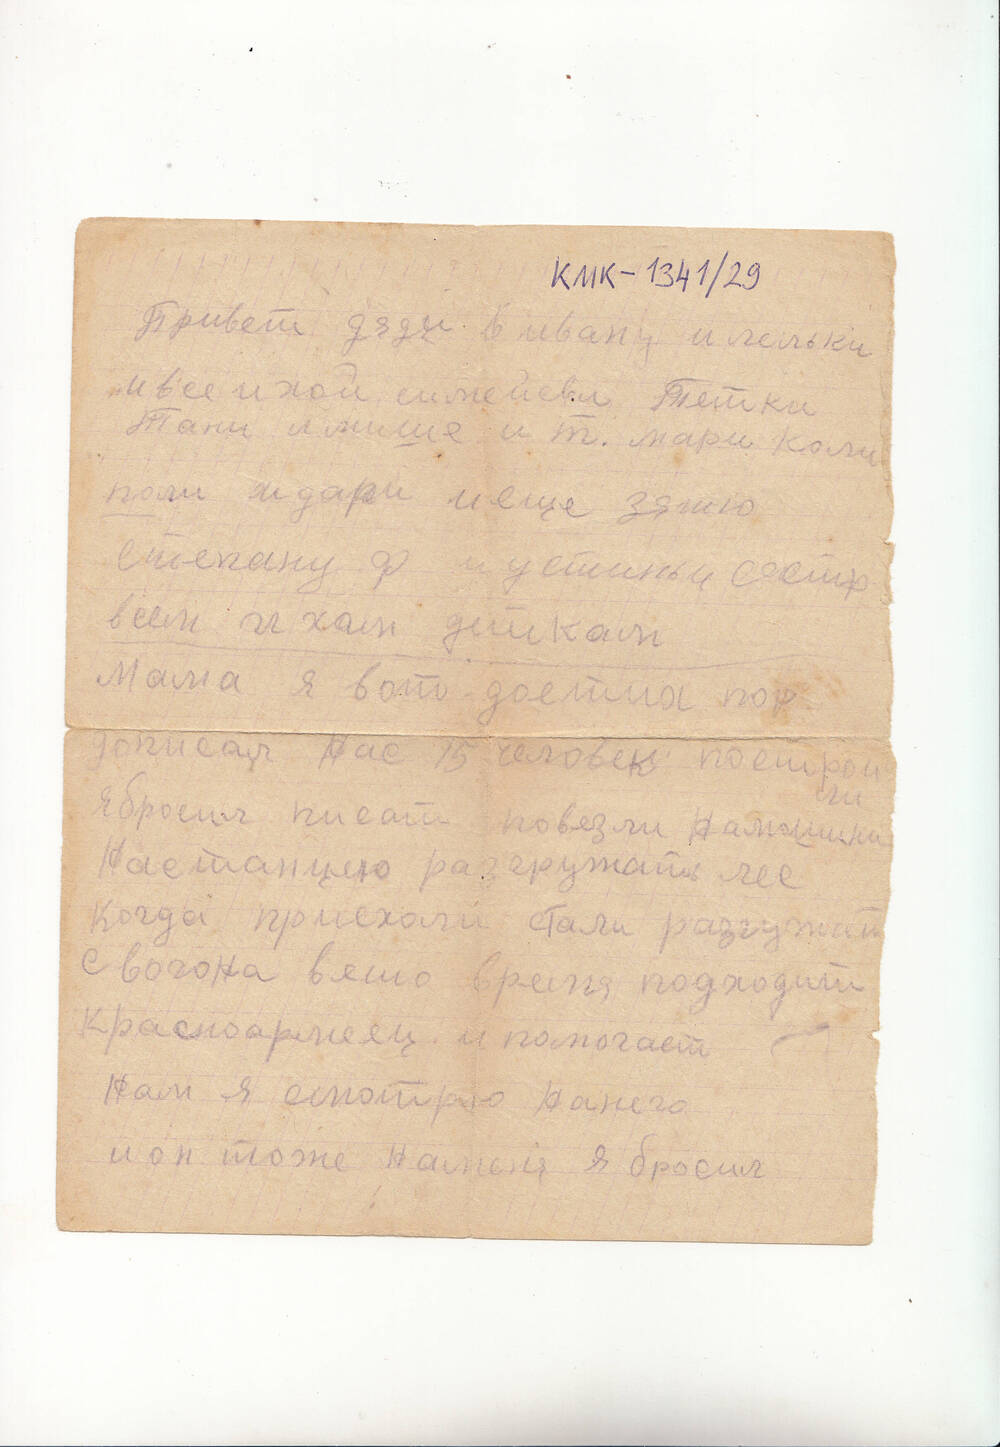 КМК-1341/29
Привет дяди Ивану и лельки
и все ихой Тетки
Тани и мише и т. мари коли
поли и дари и еще зятю
степану ф и устиньи сестр
всем ихам деткам
Мама я вот достиг пор
дописал Нас 15 человек построи
ли
я бросил писат повезли Намашини
Настанцею разгружать лес
когда приехали стали разгружат
с вогона вето время подходит
красноармеец и помогает
Нам я смотрю Нанего
и он тоже Наменя я бросил